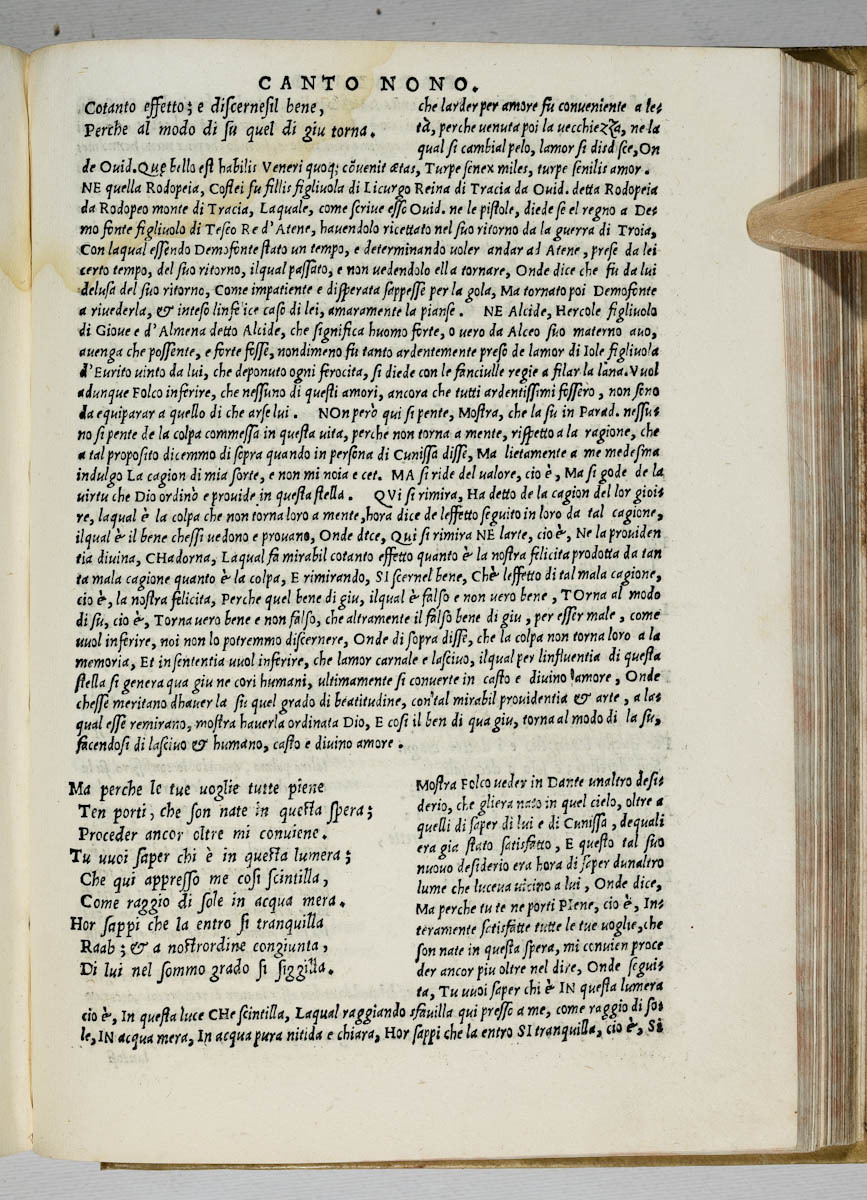 CANTO NONO.
Cotanto effetto; e discernesil bene,
Perche al modo di su quel di giu torna.
che larder per amore fu conueniente a le-
tà, perche venuta poi la vecchiezza, ne la
qual si cambial pelo, lamor si disdisce, On
de Ouid. Quę bello est habilis Veneri quoq; cōvenit ætas, Turpe senex miles, turpe senilis amor.
NE quella Rodopeia, Costei fu fillis figliuola di Licurgo Reina di Tracia da Ouid. detta Rodopeia
da Rodopeo monte di Tracia, Laquale, come scriue esso Ouid. ne le pistole, diede se el regno a De=
mo fonte figliuolo di Teseo Re d'Atene, hauendolo ricettato nel suo ritorno da la guerra di Troia,
Con laqual essendo Demofonte stato un tempo, e determinando uoler andar ad Atene, prese da lei
certo tempo, del suo ritorno, ilqual passato, e non uedendolo ella tornare, Onde dice che fu da lui
delusa del suo ritorno, Come impatiente e disperata sappesse per la gola, Ma tornato poi Demofonte
a riuederla, & inteso linfelice caso di lei, amaramente la pianse. NE Alcide, Hercole figliuolo
di Gioue e d'Almena detto Alcide, che significa huomo forte, o uero da Alceo suo materno auo,
auenga che possente, e forte fosse, nondimeno fu tanto ardentemente preso de lamor di Iole figliuola
d'Eurito uinto da lui, che deponuto ogni ferocita, si diede con le fanciulle regie a filar la lana. Vuol
adunque Folco inferire, che nessuno di questi amori, ancora che tutti ardentissimi fossero, non sono
da equiparar a quello di che arse lui. NOn però qui si pente, Mostra, che la su in Parad. nessu=
no si pente de la colpa commessa in questa uita, perche non torna a mente, rispetto a la ragione, che
a tal proposito dicemmo di sopra quando in persona di Cunissa disse, Ma lietamente a me medesma
indulgo La cagion di mia sorte, e non mi noia e cet. MA si ride del valore, cio è, Ma si gode de la
uirtu che Dio ordinò e prouide in questa stella. QVi si rimira, Ha detto de la cagion del lor gioi=
re, laqual è la colpa che non torna loro a mente, hora dice de leffetto seguito in loro da tal cagione,
ilqual è il bene chessi uedono e prouano, Onde dtce, Qui si rimira NE larte, cio è, Ne la prouiden
tia diuina, CHadorna, Laqual fa mirabil cotanto effetto quanto è la nostra felicita prodotta da tan
ta mala cagione quanto è la colpa, E rimirando, SI scernel bene, Chè leffetto di tal mala cagione,
cio è, la nostra felicita, Perche quel bene di giu, ilqual è falso e non uero bene, TOrna al modo
di su, cio è, Torna uero bene e non falso, che altramente il falso bene di giu, per esser male, come
uuol inferire, noi non lo potremmo discernere, Onde di sopra disse, che la colpa non torna loro a la
memoria, Et in sententia uuol inferire, che lamor carnale e lasciuo, ilqual per linfluentia di questa
stella si genera qua giu ne cori humani, ultimamente si conuerte in casto e diuino amore, Onde
chesse meritano dhauer la su quel grado di beatitudine, con tal mirabil prouidentia & arte, a las
qual esse remirano, mostra hauerla ordinata Dio, E cosi il ben di qua giu, torna al modo di la su,
facendosi di lasciuo & humano, casto e diuino amore.
Ma perche le tue voglie tutte piene
Ten porti, che son nate in questa spera;
Proceder ancor oltre mi conuiene.
Tu vuoi saper chi è in questa lumera;
Che qui appresso me cosi scintilla,
Come raggio di sole in acqua mera.
Hor sappi che la entro si tranquilla
Raab; & a nostrordine congiunta,
Di lui nel sommo grado si siggilla.
Mostra Folco ueder in Dante unaltro desi=
derio, che gliera nato in quel cielo, oltre a
quelli di saper di lui e di Cunissa, dequali
era gia stato satisfatto, E questo tal suo
nuouo desiderio era hora di saper dunaltro
lume che luceua uicino a lui, Onde dice,
Ma perche tu te ne porti PIene, cio è, In=
teramente satisfatte tutte le tue uoglie, che
son nate in questa spera, mi conuien proce
der ancor piu oltre nel dire, Onde segui=
ta, Tu uuoi saper chi è IN questa lumera
cio è, In questa luce CHe scintilla, Laqual raggiando sfauilla qui presso a me, come raggio di so=
le, IN acqua mera, In acqua pura nitida e chiara, Hor sappi che la entro SI tranquilla, cio è, Si